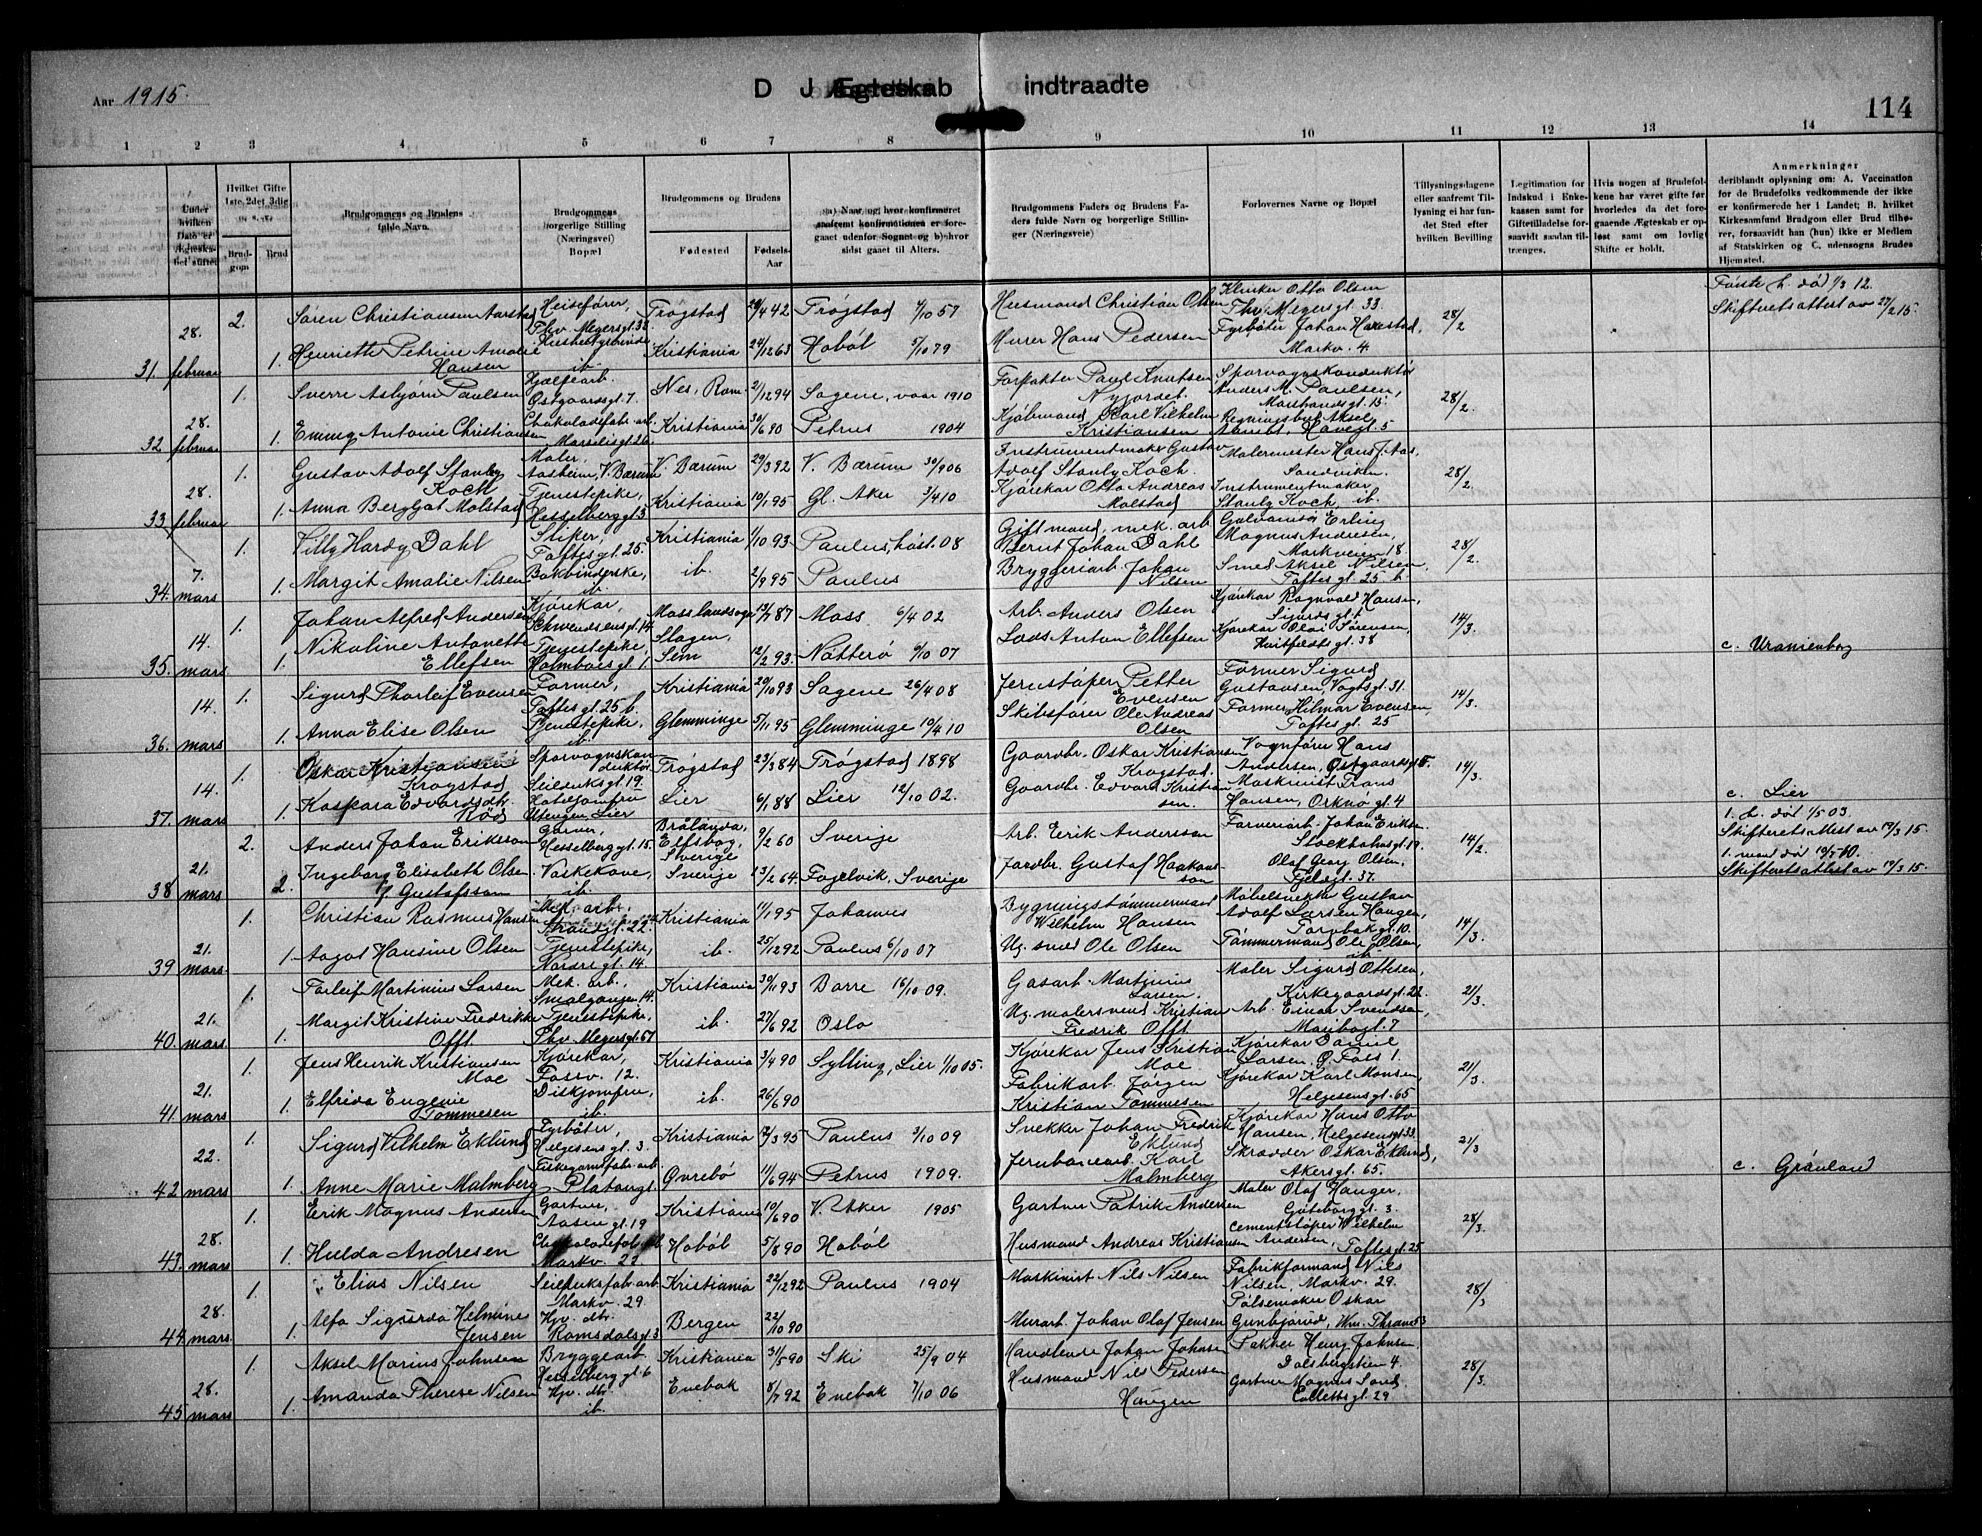 Aar 1915.
D J Ægteskab indtraadte
114
1 2 3 4 5 6 7 8 9 10 11 12 13 14
Under hvilken Dato er Ægteskabet stiftet
Hvilket Gifte 1ste, 2det 3dig
Brudgom
Brud
Brudgommens og Brudens fulde Navn.
Brudgommens borgerlige Stilling (Næringsvei) Bopæl
Brudgommens og Brudens
Fødested
Fødsels-Aar
a) Naar og hvor konfirmeret saafremt konfirmationen er foregaaet udenfor Sognet og b) hvor sidst gaaet til Alters.
Brudgommens Faders og Brudens Faders fulde Navn og borgerlige Stillinger (Næringsveie)
Forlovernes Navne og Bopæl
Tillysningsdagene eller saafremt Tillysning ei har fundet Sted efter hvilken Bevilling
Legitimation for Indskud i Enkekassen samt for Giftetilladelse forsaavidt saadan tiltrænges.
Hvis nogen af Brudefolkene har været gifte før hvorledes da det foregaaende Ægteskab er opløst samt om lovlig Skifte er holdt.
Anmerkninger
deriblandt oplysning om: A. Vaccination for de Brudefolks vedkommende der ikke er konfirmerede her i Landet; B. hvilket Kirkesamfund Brudgom eller Brud tilhører, forsaavidt han (hun) ikke er Medlem af Statskirken og C. udensogns Brudes Hjemsted.
31. 28. februar 2. Søren Christiansen Aarstad Heisefører, Thv. Meyersgt. 33 Trøgstad 29/4 42 Trøgstad 7/10 57 Husmand Christian Olsen Klinker Otto Olsen Thv. Meyersgt. 33. 28/2 Første h. død 1/3 12. Skifteretsattest av 27/2 15.
1. Henriette Petrine Amalie Hansen ib. Kristiania 24/12 63 Hobøl 5/10 79 Murer Hans Pedersen Fyrbøter Johan Harestad, Markv. 4.
32 28. februar 1. Sverre Asbjørn Paulsen Hjælpearb. Østgaardsgt. 7. Nes, Rom. 2/12 94 Sagene, vaar 1910 Forpakter Paul Knutsen Nyjordet. Sporvognskonduktør Anders M. Paulsen, 28/2.
1. Emmy Antonie Christiansen Chokoladefab. arb. Kristiania 30/6 90 Petrus 1904 Kjøbmand Karl Vilhelm Kristiansen Regningsbud Aksel Havegt. 5
33 28. februar 1. Gustav Adolf Stanly Koch Maler, Aasheim, V. Bærum V. Bærum 29/3 92 V. Bærum 30/9 06 Instrumentmaker Gustav Adolf Stanly Koch. Malermester Hans J. Aas, Sandviken. 28/2.
1. Anna Bergljot Molstad Tjenestepike, Hesselberg gt. 3 Kristiania 10/1 95 Gl. Aker 3/4 10 Kjørekar Otto Andreas Molstad Instrumentmaker Stanly Koch, ib.
34. 7. mars 1. Villy Hardy Dahl Toftesgt. 25. Kristiania 1/10 93 Paulus, høst. 08 Giftmand, mek. arb. Bernt Johan Dahl Erling Magnus Andresen, Markveien 18 28/2.
1. Margit Amalie Nilsen Bokbinderske, ib. ib. 2/9 95 Paulus Bryggeriarb. Johan Nilsen Smed Aksel Nilsen, Toftes gt. 25 b
35. 14. mars 1. Johan Alfred Andersen Kjørekar, Schwendsensgt. 14. Moss landsogn 13/7 87 Moss 6/4 02 Arb. Anders Olsen Kjørekar Ragnvald Hansen, Sigurds gt. 14/3.
1. Nikoline Antonette Ellefsen Tjenestepike, Holmboes gt. 1 Slagen, Sem 12/2 93. Nøtterø 6/10 07 Lods Anton Ellefsen Kjørekar Olai Sørensen, Huitfeldts gt. 38 c. Uranienborg
36. 14. mars 1. Sigurd Thorleif Evensen Former, Toftes gt. 25 b. Kristiania 29/10 93 Sagene 26/4 08 Jernstøper Petter Evensen Former Sigurd Gustavsen, Vogts gt. 31. 14/3.
1. Anna Elise Olsen Tjenestepike, ib. Glemminge 5/11 95 Glemminge 10/4 10 Skibsfører Ole Andreas Olsen Former Hilmar Evensen, Toftes gt. 25
37. 14. mars 1. Oskar Kristiansen Krogstad Sporvognskonduktør Seilduksgt. 19. Trøgstad 23/3 84 Trøgstad 1898 Gaardbr. Oskar Kristiansen Krogstad. Vognfører Hans Andersen, Østgaardsgt. 5. 14/3.
1. Kaspara Edvardsdt. Röd Hoteljomfru Lier Lier 6/1 88 Lier 12/10 02. Gaardbr. Edvard Kristiansen. Maskinist Frans Hansen, Osknø gt. 4 c. Lier
38 21. mars 2. Anders Johan Eriksson Garver, Hesselberg gt. 15. Brålanda, Elfsborg, Sverige 9/2 60 Sverige Arb. Erik Andersson Farveriarb. Johan Eriksen Stockholmsgt. 19. 14/2. 1. h. død 1/5 03. Skifteretsattest av 12/3 15.
2. Ingeborg Elisabeth Olsen f. Gustafsson Vaskekone, ib. Sverige 13/2 64. Fogelvik, Sverige Jordbr. Gustaf Haakonsson Olaf Georg Olsen, Fjeldgt. 37. 1. mand død 10/5 10. Skifteretsattest av 12/3 15.
39 21. mars. 1. Christian Rasmus Hansen Mek. arb. Strandgt. 22. Kristiania 11/1 95 Johannes Bygningstømmermand Wilhelm Hansen Møbelsnekker Gustav Adolf Larsen Hauger, Torvbakgt. 10. 14/3.
1. Aagot Hansine Olsen Tjenestepike, Nordregt. 14. ib. 25/12 92 Paulus 6/10 07 Ug. smed Ole Olsen Tømmermand Ole Olsen, ib.
40. 21. mars. 1. Torleif Martinius Larsen Mek. arb., Smalgangen 14. Kristiania 30/11 93 Borre 16/10 09. Gasarb. Martinius Larsen, Maler Sigurd Ottesen, Kirkegaardsgt. 22. 21/3.
1. Margit Kristine Fredrikke Offt Tjenestepike, Thv. Meyersgt. 67 ib. 27/6 92 Oslo Ug. malersvend Kristian Fredrik Offt Arb. Einar Svendsen, Maribogt. 7
41. 21. mars 1. Jens Henrik Kristiansen Moe Kjørekar, Fossv. 12. Kristiania 3/4 90 Sylling, Lier 1/10 05. Kjørekar Jens Kristian Moe Kjørekar Daniel Larsen, Ø. Foss 1. 21/3.
1. Elfrida Eugenie Tommesen Diskjomfru, ib. ib. 26/6 90 Fabrikarb. Jørgen Kristian Tommesen Kjørekar Karl Monsen, Helgesensgt. 65
42 22. mars 1. Sigurd Vilhelm Eklund Fyrbøter, Helgesens gt. 3. Kristiania 12/3 95 Paulus 3/10 09 Snekker Johan Fredrik Eklund Kjørekar Hans Otto Hansen, Helgesensgt. 33. 21/3
1. Anne Marie Malmberg Fiskegarnsfab. arb. Platous gt. Øvrebø 11/6 94 Petrus 1909. Jernbanearb. Karl Malmberg Skrædder Oskar Eklund, Akersgt. 65. c. Grønland
43. 28. mars 1. Erik Magnus Andersen Gartner, Aasen gt. 19 Kristiania 10/6 90 V. Aker 1905 Gartner Patrik Andersen Maler Olaf Hauger, Gøteborg gt. 3. 28/3.
1. Hulda Andresen Chokoladefab. arb. Markv. 22. Hobøl 5/8 90 Hobøl Husmand Andreas Kristiansen Cementstøper Wilhelm Andersen, Toftesgt. 25
44 28. mars. 1. Elias Nilsen Seilduksfab. arb Markv. 29. Kristiania 22/12 92 Paulus 1904 Maskinist Nils Nilsen Fabrikformand Nils Nilsen, Markv. 29. 28/3
1. Alfa Sigurda Helmine Jensen Hjv. dtr. Romsdalsgt. 3 Bergen 22/10 90 Murarb. Johan Olaf Jensen Pølsemaker Oskar Gunbjørud, Wm. Thranesgt. 53
45 28. mars 1. Aksel Marius Johnsen Bryggearb. Hesselberg gt. 6 Kristiania 31/5 90 Ski 25/9 04 Handlende Johan Johnsen Pakker Henry Johnsen, Dalsbergstien 4. 28/3.
1. Amanda Therese Nilsen Hjv. dtr. ib. Enebak 8/7 92 Enebak 1/10 06 Husmand Nils Pedersen Haugen Gartner Magnus Sand, Colletts gt. 29